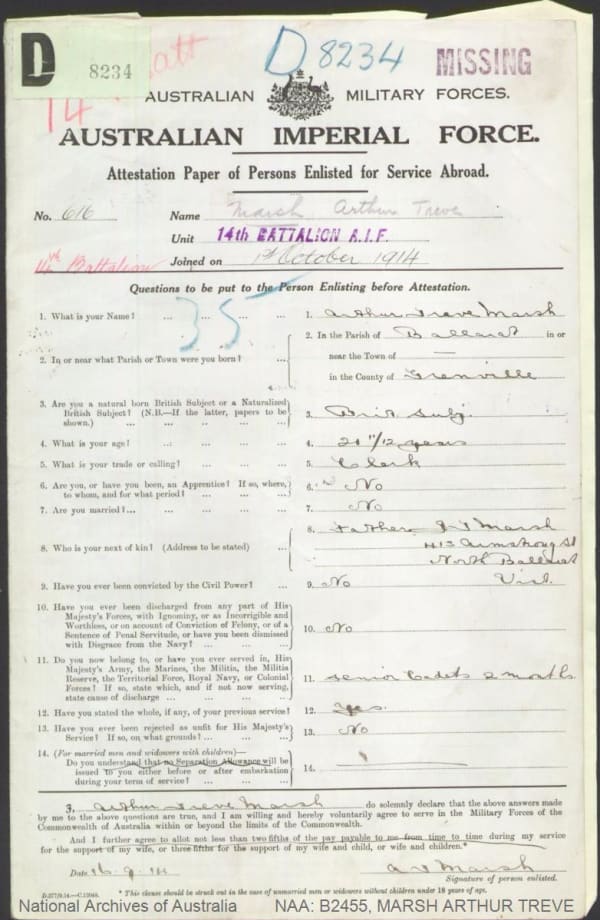 D
8234
D 8234
MISSING
14
AUSTRALIAN MILITARY FORCES.
AUSTRALIAN IMPERIAL FORCE.
Attestation Paper of Persons Enlisted for Service Abroad.
No. 616 Name Marsh Arthur Treve
Unit 14th BATTALION A.I.F.
14th Battalion Joined on 1st October 1914
Questions to be put to the Person Enlisting before Attestation.
35
1. What is your Name? ... ... ... ... 1. Arthur Treve Marsh
2. In or near what Parish or Town were you born? ... 2. In the Parish of Ballarat in or
near the Town of —
in the County of Grenville
3. Are you a natural born British Subject or a Naturalized
British Subject? (N.B.—If the latter, papers to be
shown.) ... ... ... ... ... 3. Brit. Subj.
4. What is your age? ... ... ... ... 4. 21 11/12 years
5. What is your trade or calling? ... ... ... 5. Clerk
6. Are you, or have you been, an Apprentice? If so, where,
to whom, and for what period? ... ... ... 6. No
7. Are you married? ... ... ... ... ... 7. No
8. Who is your next of kin? (Address to be stated) ... 8. Father Marsh
413 Armstrong St
North Ballarat
Vict.
9. Have you ever been convicted by the Civil Power? ... 9. No
10. Have you ever been discharged from any part of His
Majesty's Forces, with Ignominy, or as Incorrigible and
Worthless, or on account of Conviction of Felony, or of a
Sentence of Penal Servitude, or have you been dismissed
with Disgrace from the Navy? ... ... ... 10. No
11. Do you now belong to, or have you ever served in, His
Majesty's Army, the Marines, the Militia, the Militia
Reserve, the Territorial Force, Royal Navy, or Colonial
Forces? If so, state which, and if not now serving,
state cause of discharge ... ... ... ... 11. Senior Cadets 2 months
12. Have you stated the whole, if any, of your previous service? 12. Yes.
13. Have you ever been rejected as unfit for His Majesty's
Service? If so, on what grounds? ... ... ... 13. No
14. (For married men and widowers with children)—
Do you understand that no Separation Allowance will be
issued to you either before or after embarkation
during your term of service? ... ... ... 14.
I, Arthur Treve Marsh do solemnly declare that the above answers made
by me to the above questions are true, and I am willing and hereby voluntarily agree to serve in the Military Forces of the
Commonwealth of Australia within or beyond the limits of the Commonwealth.
And I further agree to allot not less than two fifths of the pay payable to me from time to time during my service
for the support of my wife, or three fifths for the support of my wife and child, or wife and children.*
Date 16.9.14 A T Marsh
Signature of person enlisted.
* This clause should be struck out in the case of unmarried men or widowers without children under 18 years of age.
National Archives of Australia NAA: B2455, MARSH ARTHUR TREVE